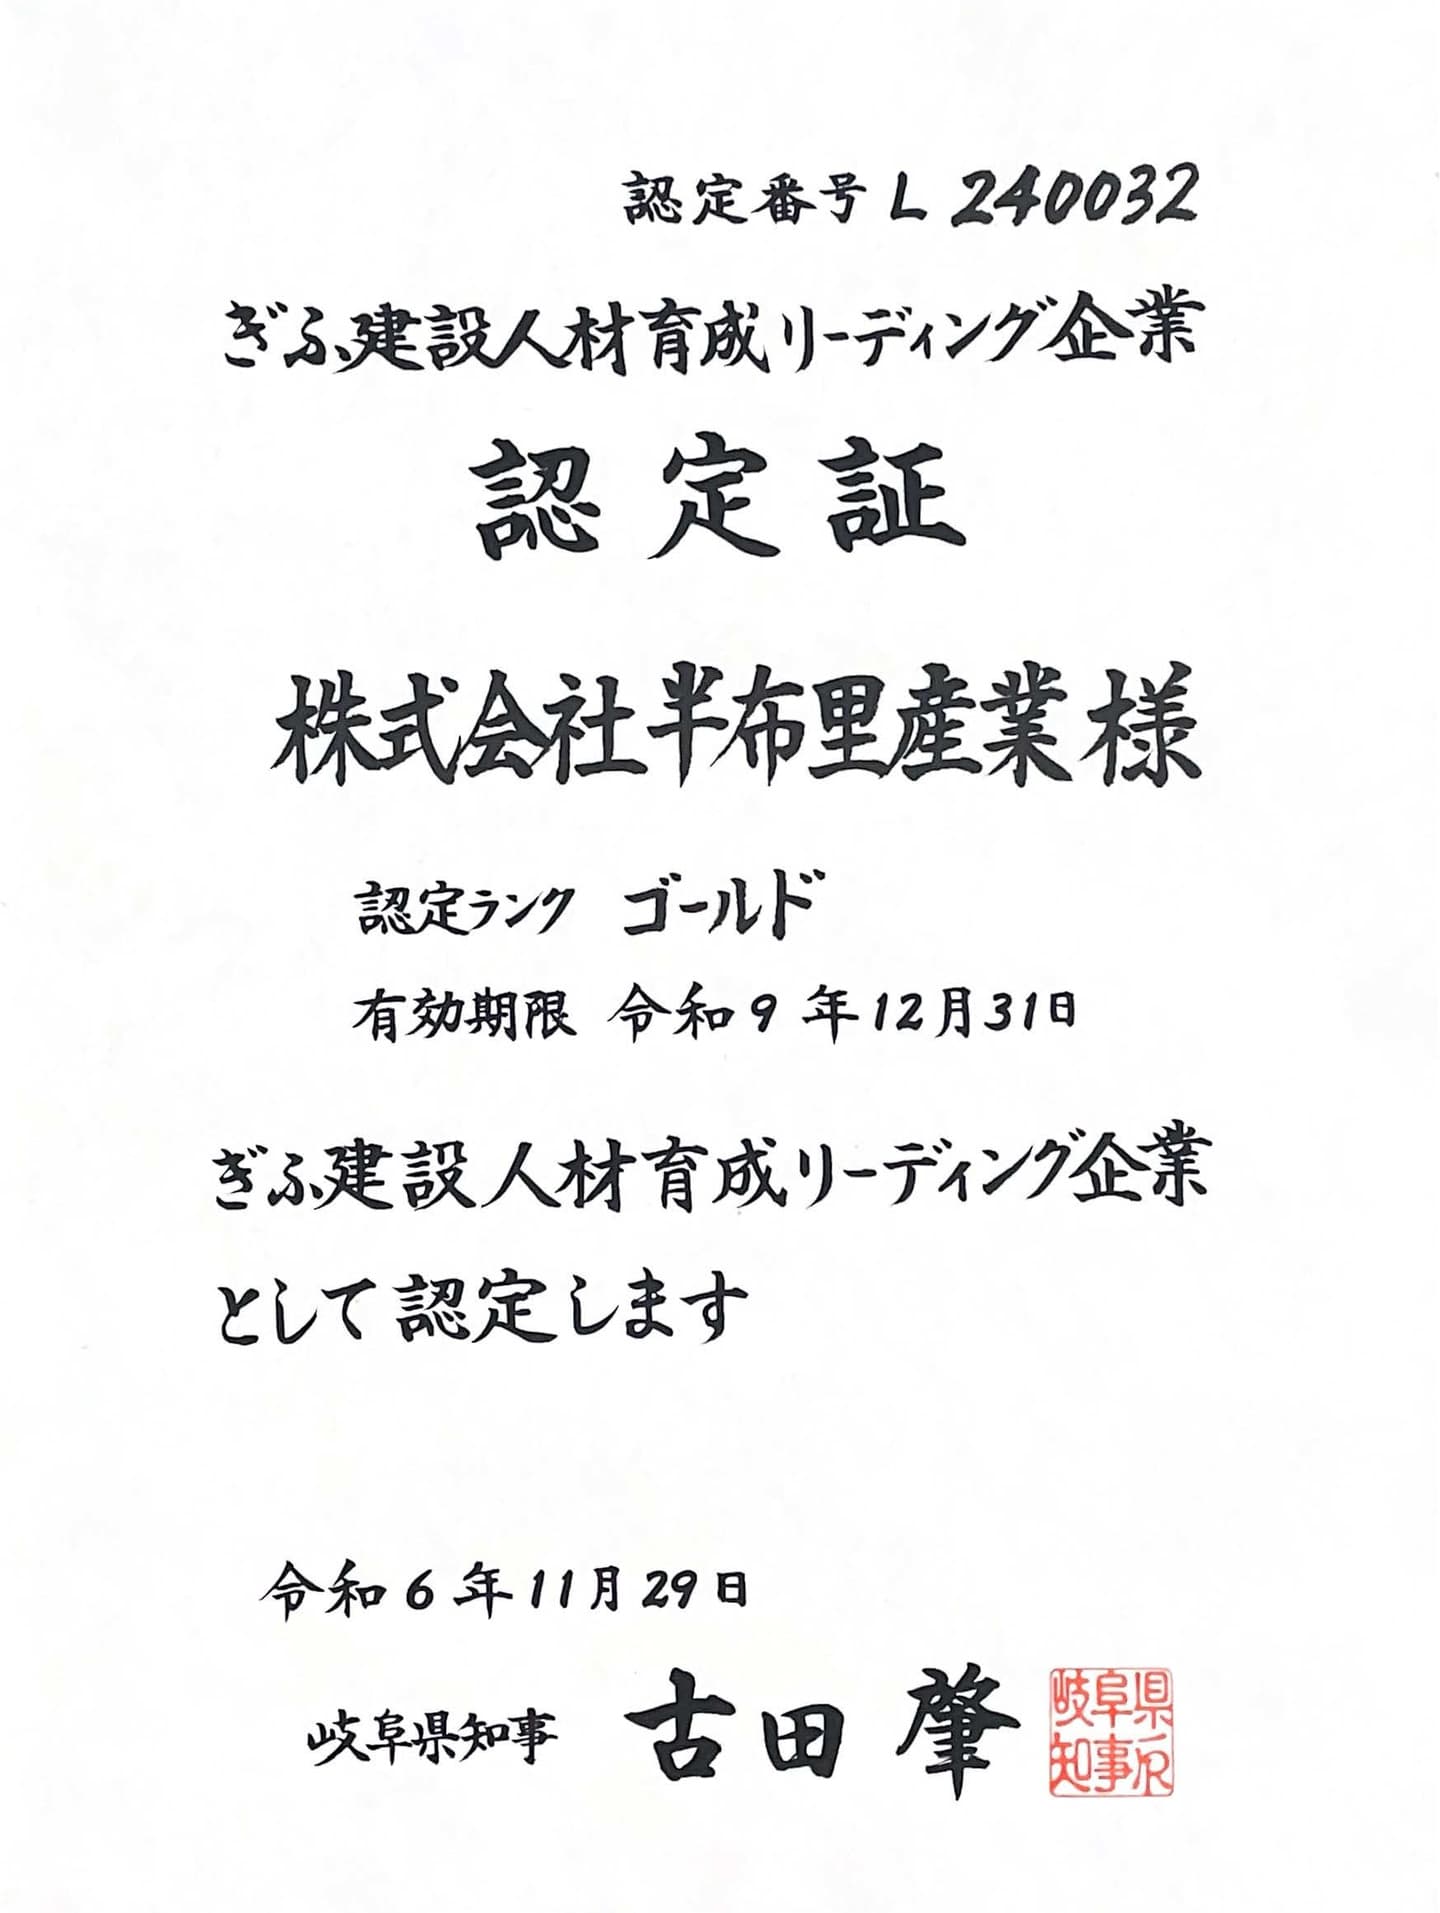 認定番号 L 240032
ぎふ建設人材育成リーディング企業
認定証
株式会社半布里産業 様
認定ランク ゴールド
有効期限 令和9年12月31日
ぎふ建設人材育成リーディング企業
として認定します
令和6年11月29日
岐阜県知事 古田 肇
岐阜県
知事印